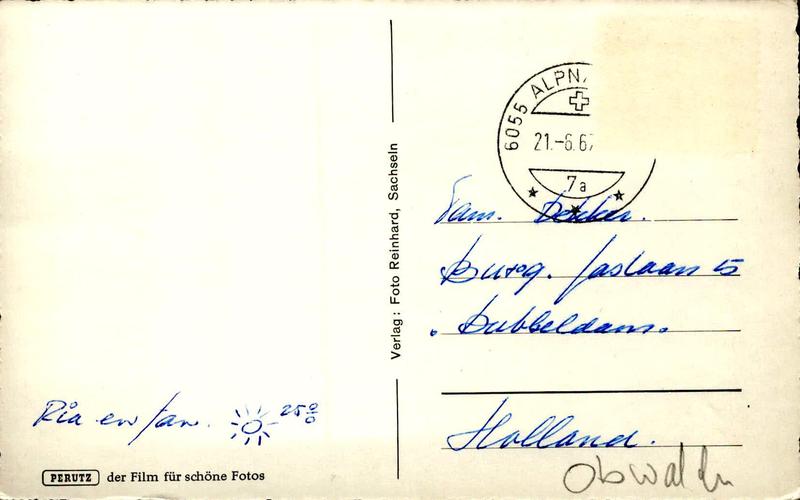 6055 ALPN
21.-6.67
7a
Verlag: Foto Reinhard, Sachsein
Fam. Dekker.
Burg. Jaslaan 5
Dubbeldam.
Holland.
Ria en Jan. 25°
PERUTZ der Film für schöne Fotos
Obwalden